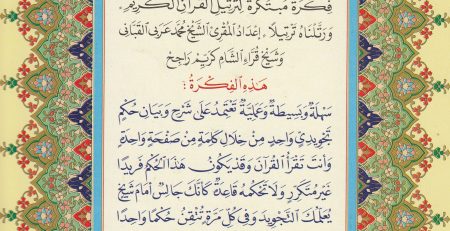 فكرة مبتكرة لترتيل القرآن الكريم
وَرَتَّلْنَاهُ تَرْتِيلًا. إعداد المقرئ الشيخ محمد عربي القباني
وشيخ قراء الشام كريم راجح
هذه الفكرة :
سهلة وبسيطة وعملية تعتمد على شرح وبيان حكم
تجويدي واحد من خلال كلمة من صفحة واحدة
وأنت تقرأ القرآن وقد يكون هذا الحكم فريدا
غير متكرر ولا تحكمه قاعدة كأنك جالس أمام شيخ
يعلمك التجويد وفي كل مرة تتقن حكما واحدا